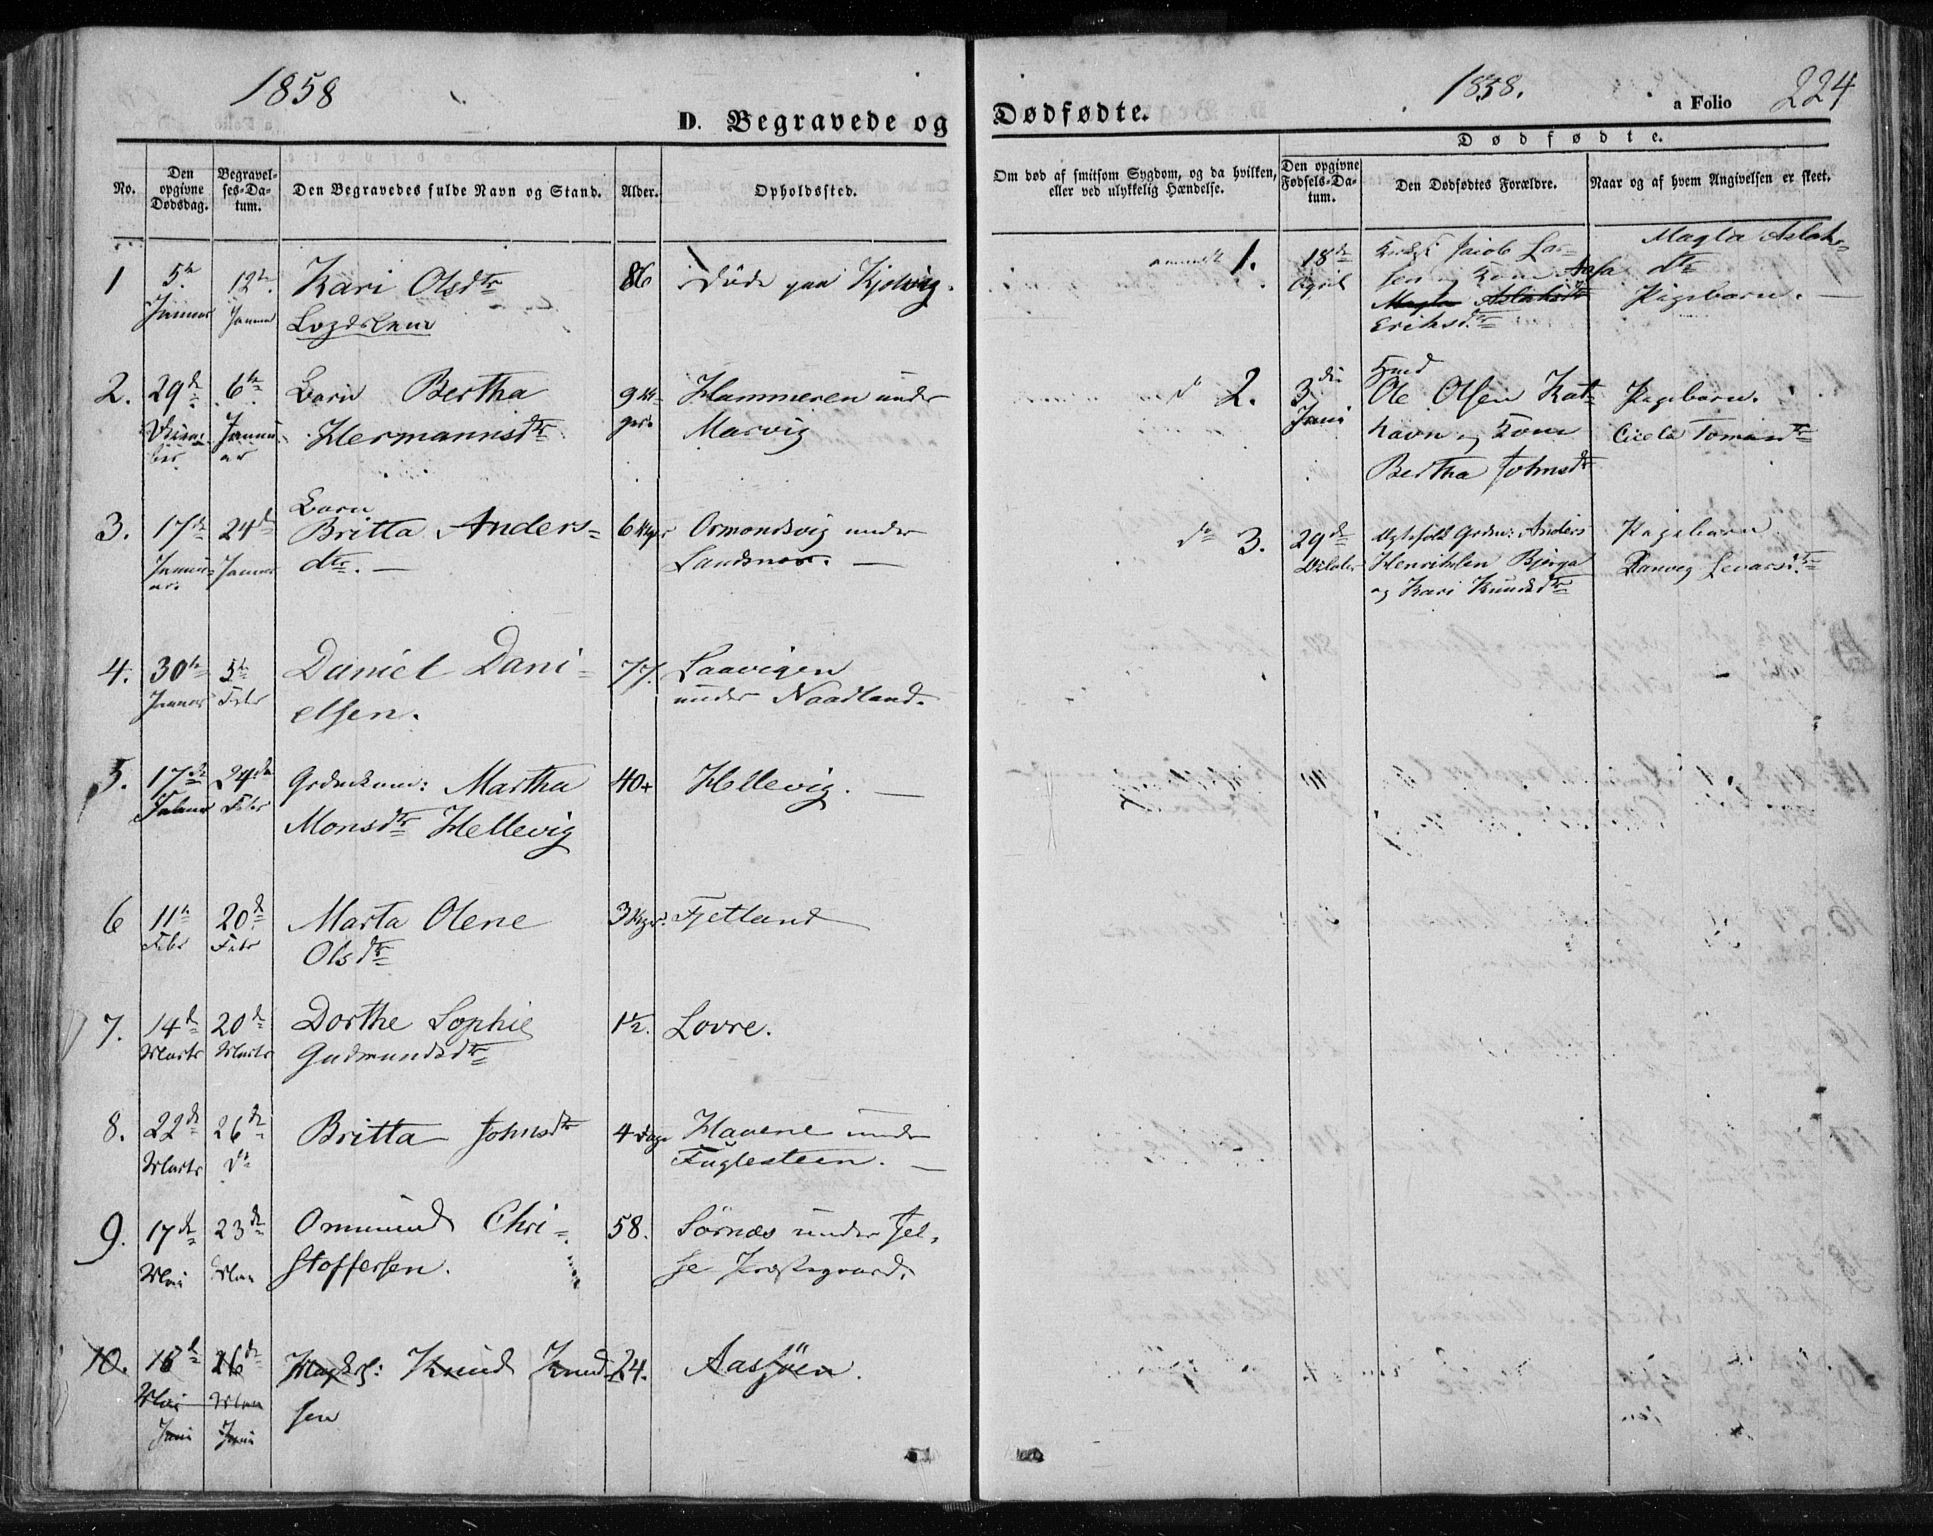 1858
D. Begravede og
No.
Den opgivne Dødsdag.
Begravelses-Datum.
Den Begravedes fulde Navn og Stand.
Alder.
Opholdssted.
1 5te 12te Kari Olsdtr 86 Døde paa
Januar Januar
2. 29de 6te Barn Bertha 9 Hammeren under
Januar Hermannsdtr Marvig
Barn
3. 17de 24de Britta Anders- 6 Ormondsvig under
Januar Januar dtr. — Landsnes. —
4. 30te 5te Daniel Dani- 77. Laavigen
Januar Febr elsen. under Naadland.
5. 17de 24de Martha 40 Hellevig. —
Febr Monsdtr Hellevig
6 11te 20de Marta Olene 3 Fjetland
Febr Febr Olsdtr
7. 14de 20de Dorthe Sophie 1½. Lovre.
Marts Marts Gudmundsdtr
8. 22de 26de Britta Johnsdtr 4 Dage Havene under
Marts do Fuglesteen. —
9. 17de 23de Ommund Chri- 58. Sörnæs under Jel-
Mai Mai stoffersen. se Præstegaard.
10. 16de 26de Knud Knud- 24. Aasföen.
Mai Mai sen
Juni Juni
1858.
a Folio 224
Dødfødte.
Dødfødte.
Om død af smitsom Sygdom, og da hvilken, eller ved ulykkelig Hændelse.
Den opgivne Fødsels-Datum.
Den Dødfødtes Forældre.
Naar og af hvem Angivelsen er skeet.
1. 18de Jacob Lar- Magla Aslaks-
April sen og Kone Aasa dtr
Magla Aslaksdtr Pigebarn. —
Eriksdtr
2. 3die Ole Olsen Pigebarn.
Juni og Kone
Bertha Johnsdtr
do 3. 29de Anders Pigebarn
Henriksen Bjørga
og Kari Knudsdtr